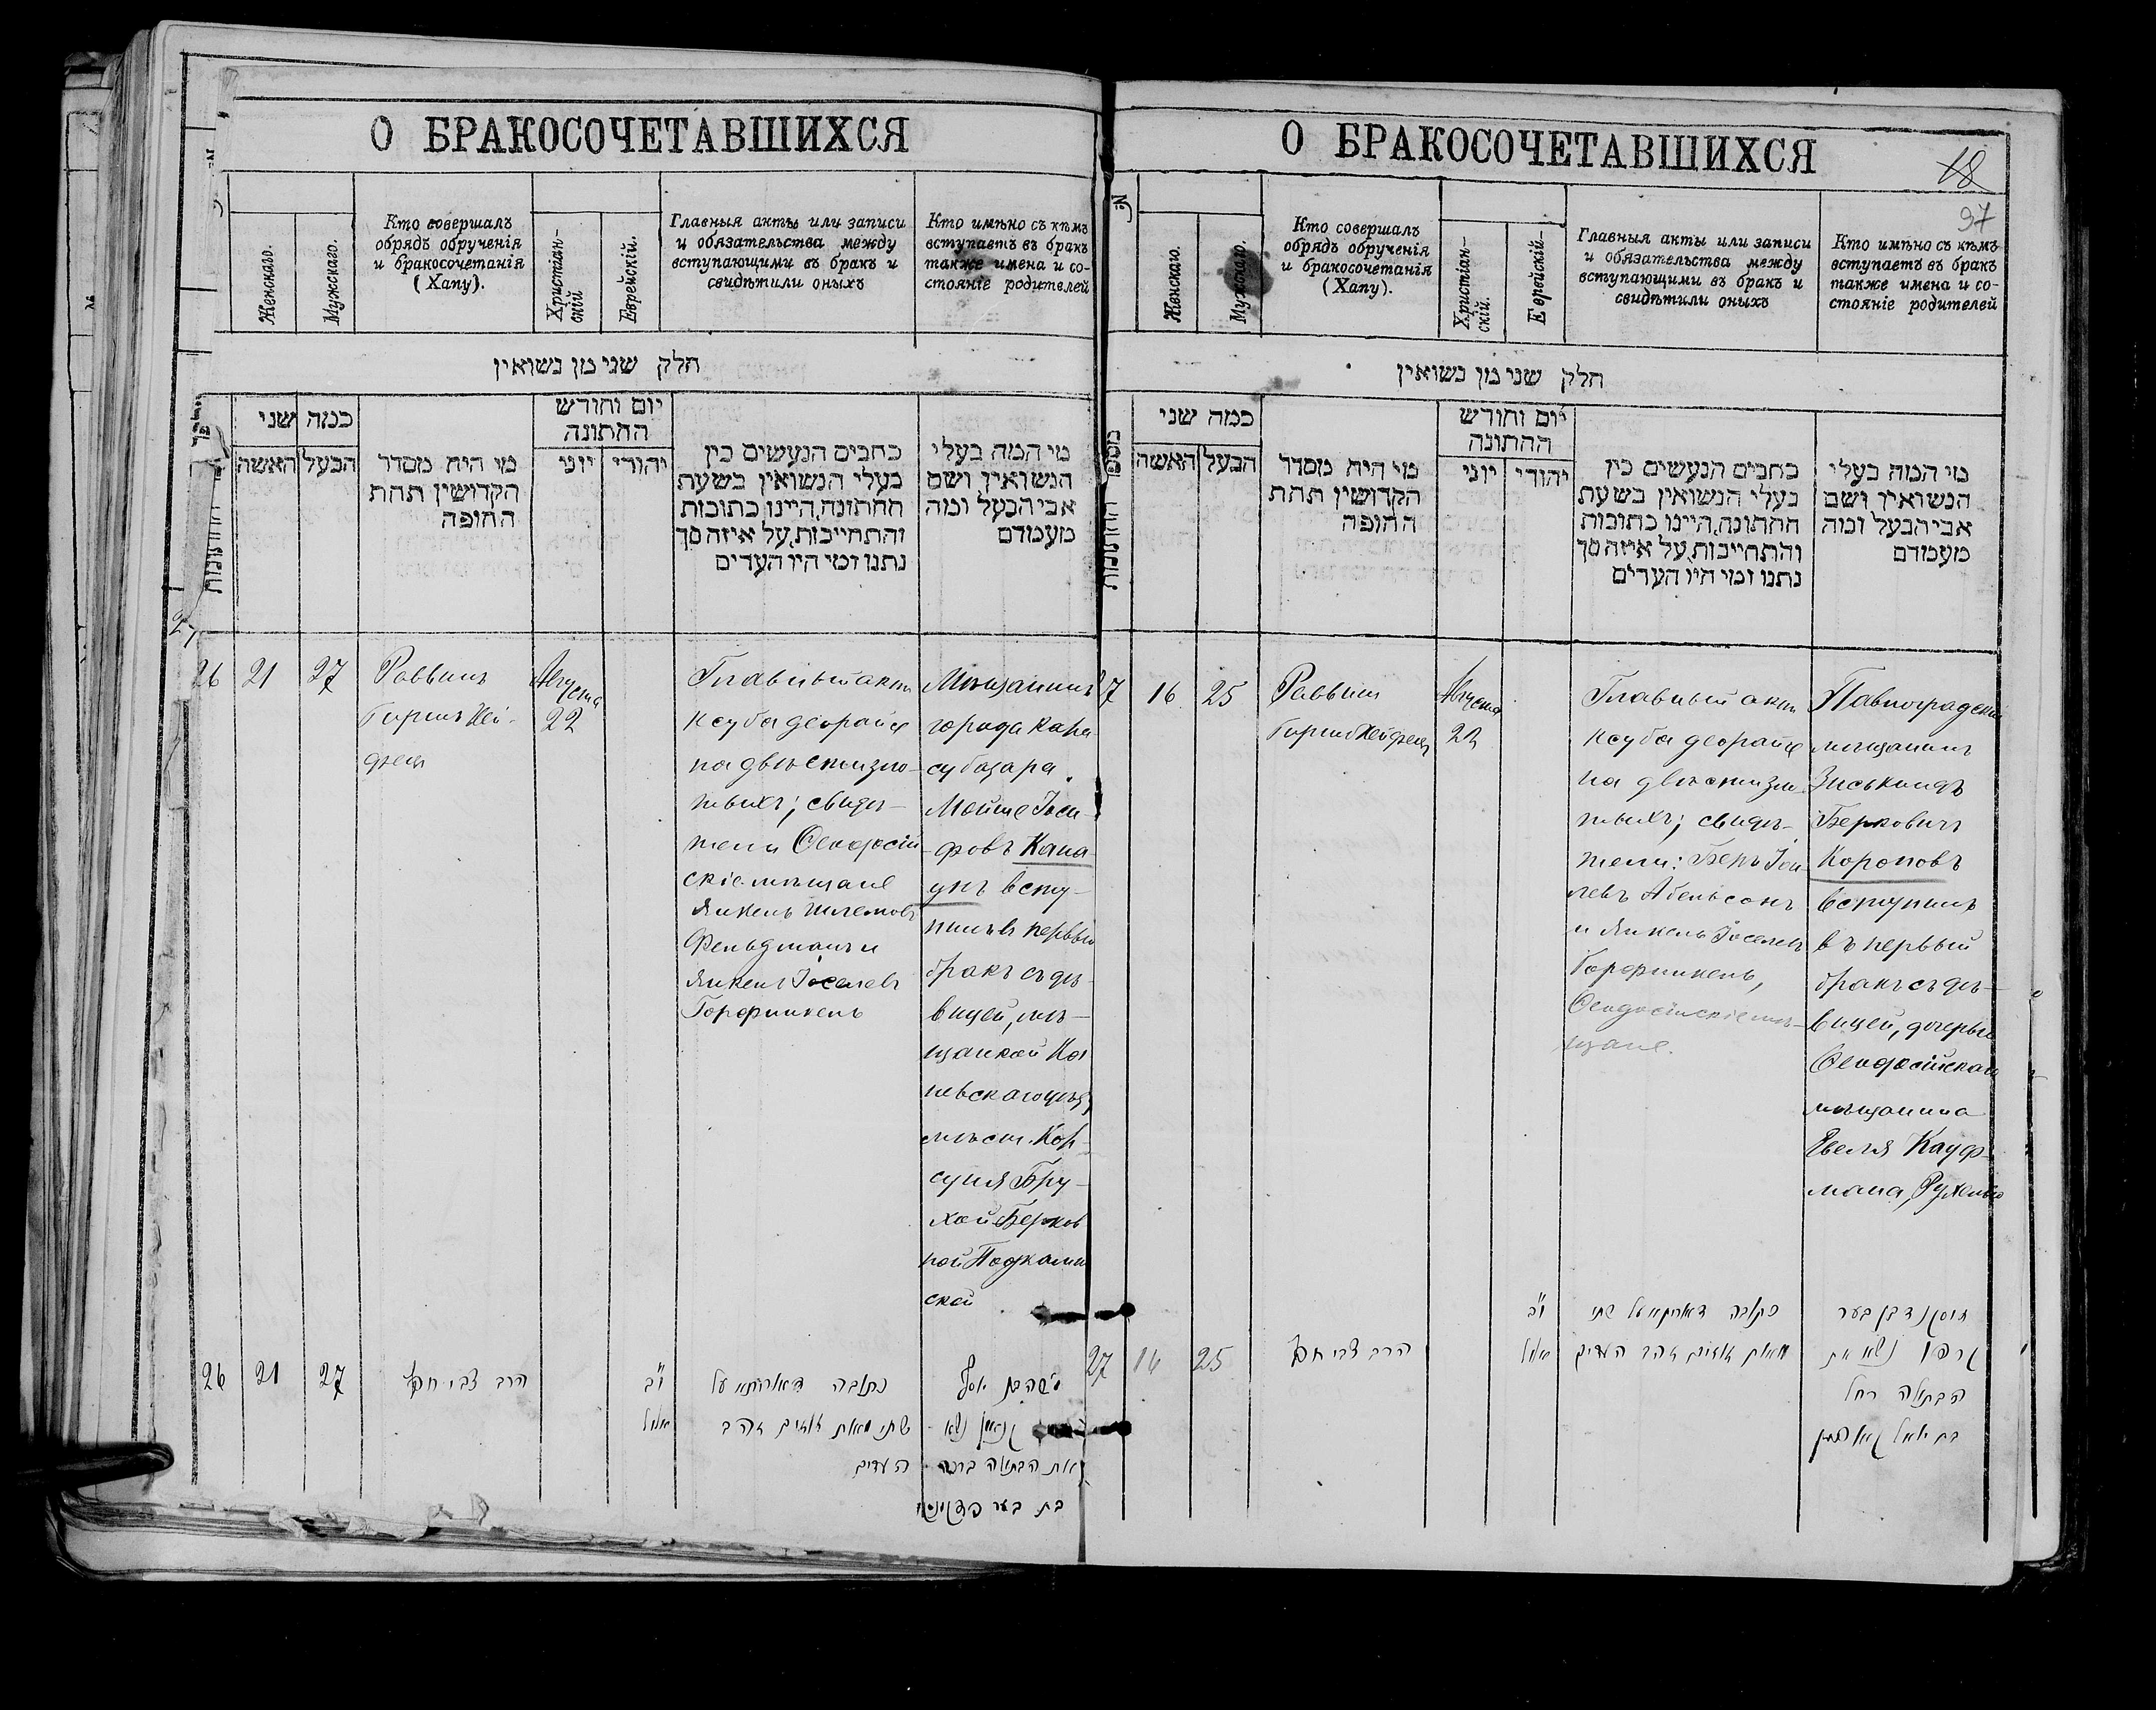 О БРАКОСОЧЕТАВШИХСЯ
Женскаго.
Мужскаго.
Кто совершалъ
обрядъ обрученія
и бракосочетанія
(Хапу).
Христіан-
скій
Еврейскій.
Главныя акты или записи
и обязательства между
вступающими въ бракъ и
свидѣтили оныхъ
Кто имѣно съ кѣмъ
вступаетъ въ бракъ
также имена и со-
стояніе родителей
חלק שני מן נשואין
כמה שני
האשה
הבעל
מי היה מסדר
הקדושין תחת
החופה
יום וחודש
החתונה
יוני
יהודי
כתבים הנעשים בין
בעלי הנשואין בשעת
החתונה, היינו כתובות
והתחייבות, על איזה סך
נתנו ומי היו העדים
מי המה בעלי
הנשואין ושם
אבי הבעל ומה
מעמדם
26
21
27
Раввинъ
Гиршъ Хей-
фецъ
Августа
22
Главный актъ
ксуба деорайсе
на двѣсти зло-
тыхъ; свидѣ-
тели Ѳеодосій-
скіе мѣщане
Янкель Шлемовъ
Фельдманъ и
Янкель Іоселевъ
Горфинкель
Мѣщанинъ
города Кара-
субазара
Мойше Іоси-
фовъ Кана-
унъ всту-
пилъ въ первый
бракъ съ дѣ-
вицей, мѣ-
щанкой Ка-
невскаго уѣзд,
мѣст. Кор-
суня Бру-
хой Берков-
ной Подкамин-
ской
26
21
27
הרב צבי חפץ
י"ב
אלול
כתובה דאורייתא על
שתי מאות זהובים זהב
העדים
משה בן יוסף
קנאון נשא
את הבתולה ברכה
בת בער
О БРАКОСОЧЕТАВШИХСЯ
18
97
№
Женскаго.
Мужскаго.
Кто совершалъ
обрядъ обрученія
и бракосочетанія
(Хапу).
Христіан-
скій.
Еврейскій-
Главныя акты или записи
и обязательства между
вступающими въ бракъ и
свидѣтили оныхъ
Кто имѣно съ кѣмъ
вступаетъ въ бракъ
также имена и со-
стояніе родителей
חלק שני מן נשואין
כמה שני
האשה
הבעל
מי היה מסדר
הקדושין תחת
החופה
יום וחודש
החתונה
יוני
יהודי
כתבים הנעשים בין
בעלי הנשואין בשעת
החתונה, היינו כתובות
והתחייבות, על איזה סך
נתנו ומי היו העדים
מי המה בעלי
הנשואין ושם
אבי הבעל ומה
מעמדם
27
16
25
Раввинъ
Гиршъ Хейфецъ
Августа
22
Главный актъ
ксуба деорайсе
на двѣсти зло-
тыхъ; свидѣ-
тели: Беръ Іои-
левъ Абельсонъ
и Янкель Іоселевъ
Горфинкель,
Ѳеодосійскіе мѣ-
щане.
Павлоградскій
мѣщанинъ
Зиськиндъ
Берковичъ
Короповъ
вступилъ
въ первый
бракъ съ дѣ-
вицей, дочерью
Ѳеодосійскаго
мѣщанина
Евеля Кауф-
мана, Рухелью
27
16
25
הרב צבי חפץ
י"ב
אלול
כתובה דאורייתא על שתי
מאות זהובים זהב העדים
זוסקינד בן בער
נשא את
הבתולה רחל